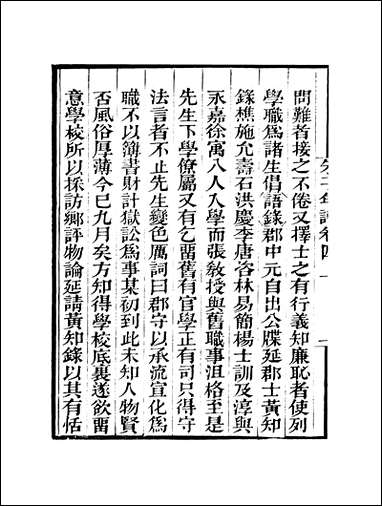 問難者接之不倦又擇士之有行義知廉恥者使列
學職爲諸生倡語錄郡中元自出公牒延郡士黃知
錄樵施允壽石洪慶李唐咨林易簡楊士訓及淳與
永嘉徐寓八人入學而張教授與舊職事沮格至是
先生下學僚屬又有乞留舊有官學正有司只得守
法言者不止先生變色厲詞曰郡守以承流宣化爲
職不以簿書財計獄訟爲事某初到此未知人物賢
否風俗厚薄今巳九月矣方知得學校底裏遂欲畱
意學校所以採訪鄉評物論延請黃知錄以其有恬